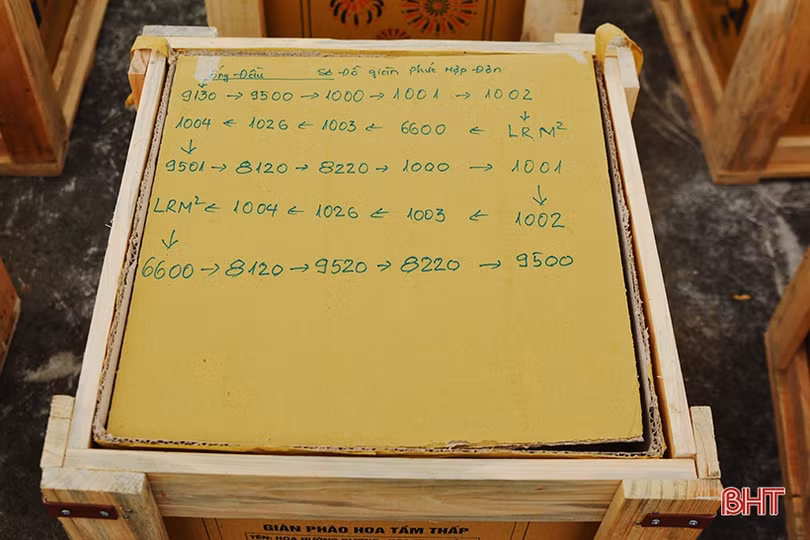 Sơ Đồ giàn phức Hợp Đạn
9130 → 9500 → 1000 → 1001 → 1002
↓
1004 ← 1026 ← 1003 ← 6600 ← LRM²
↓
9501 → 8120 → 8220 → 1000 → 1001
↓
LRM² ← 1004 ← 1026 ← 1003 ← 1002
↓
6600 → 8120 → 9520 → 8220 → 9500
GIÀN PHÁO HOA TẦM THẤP
BHT